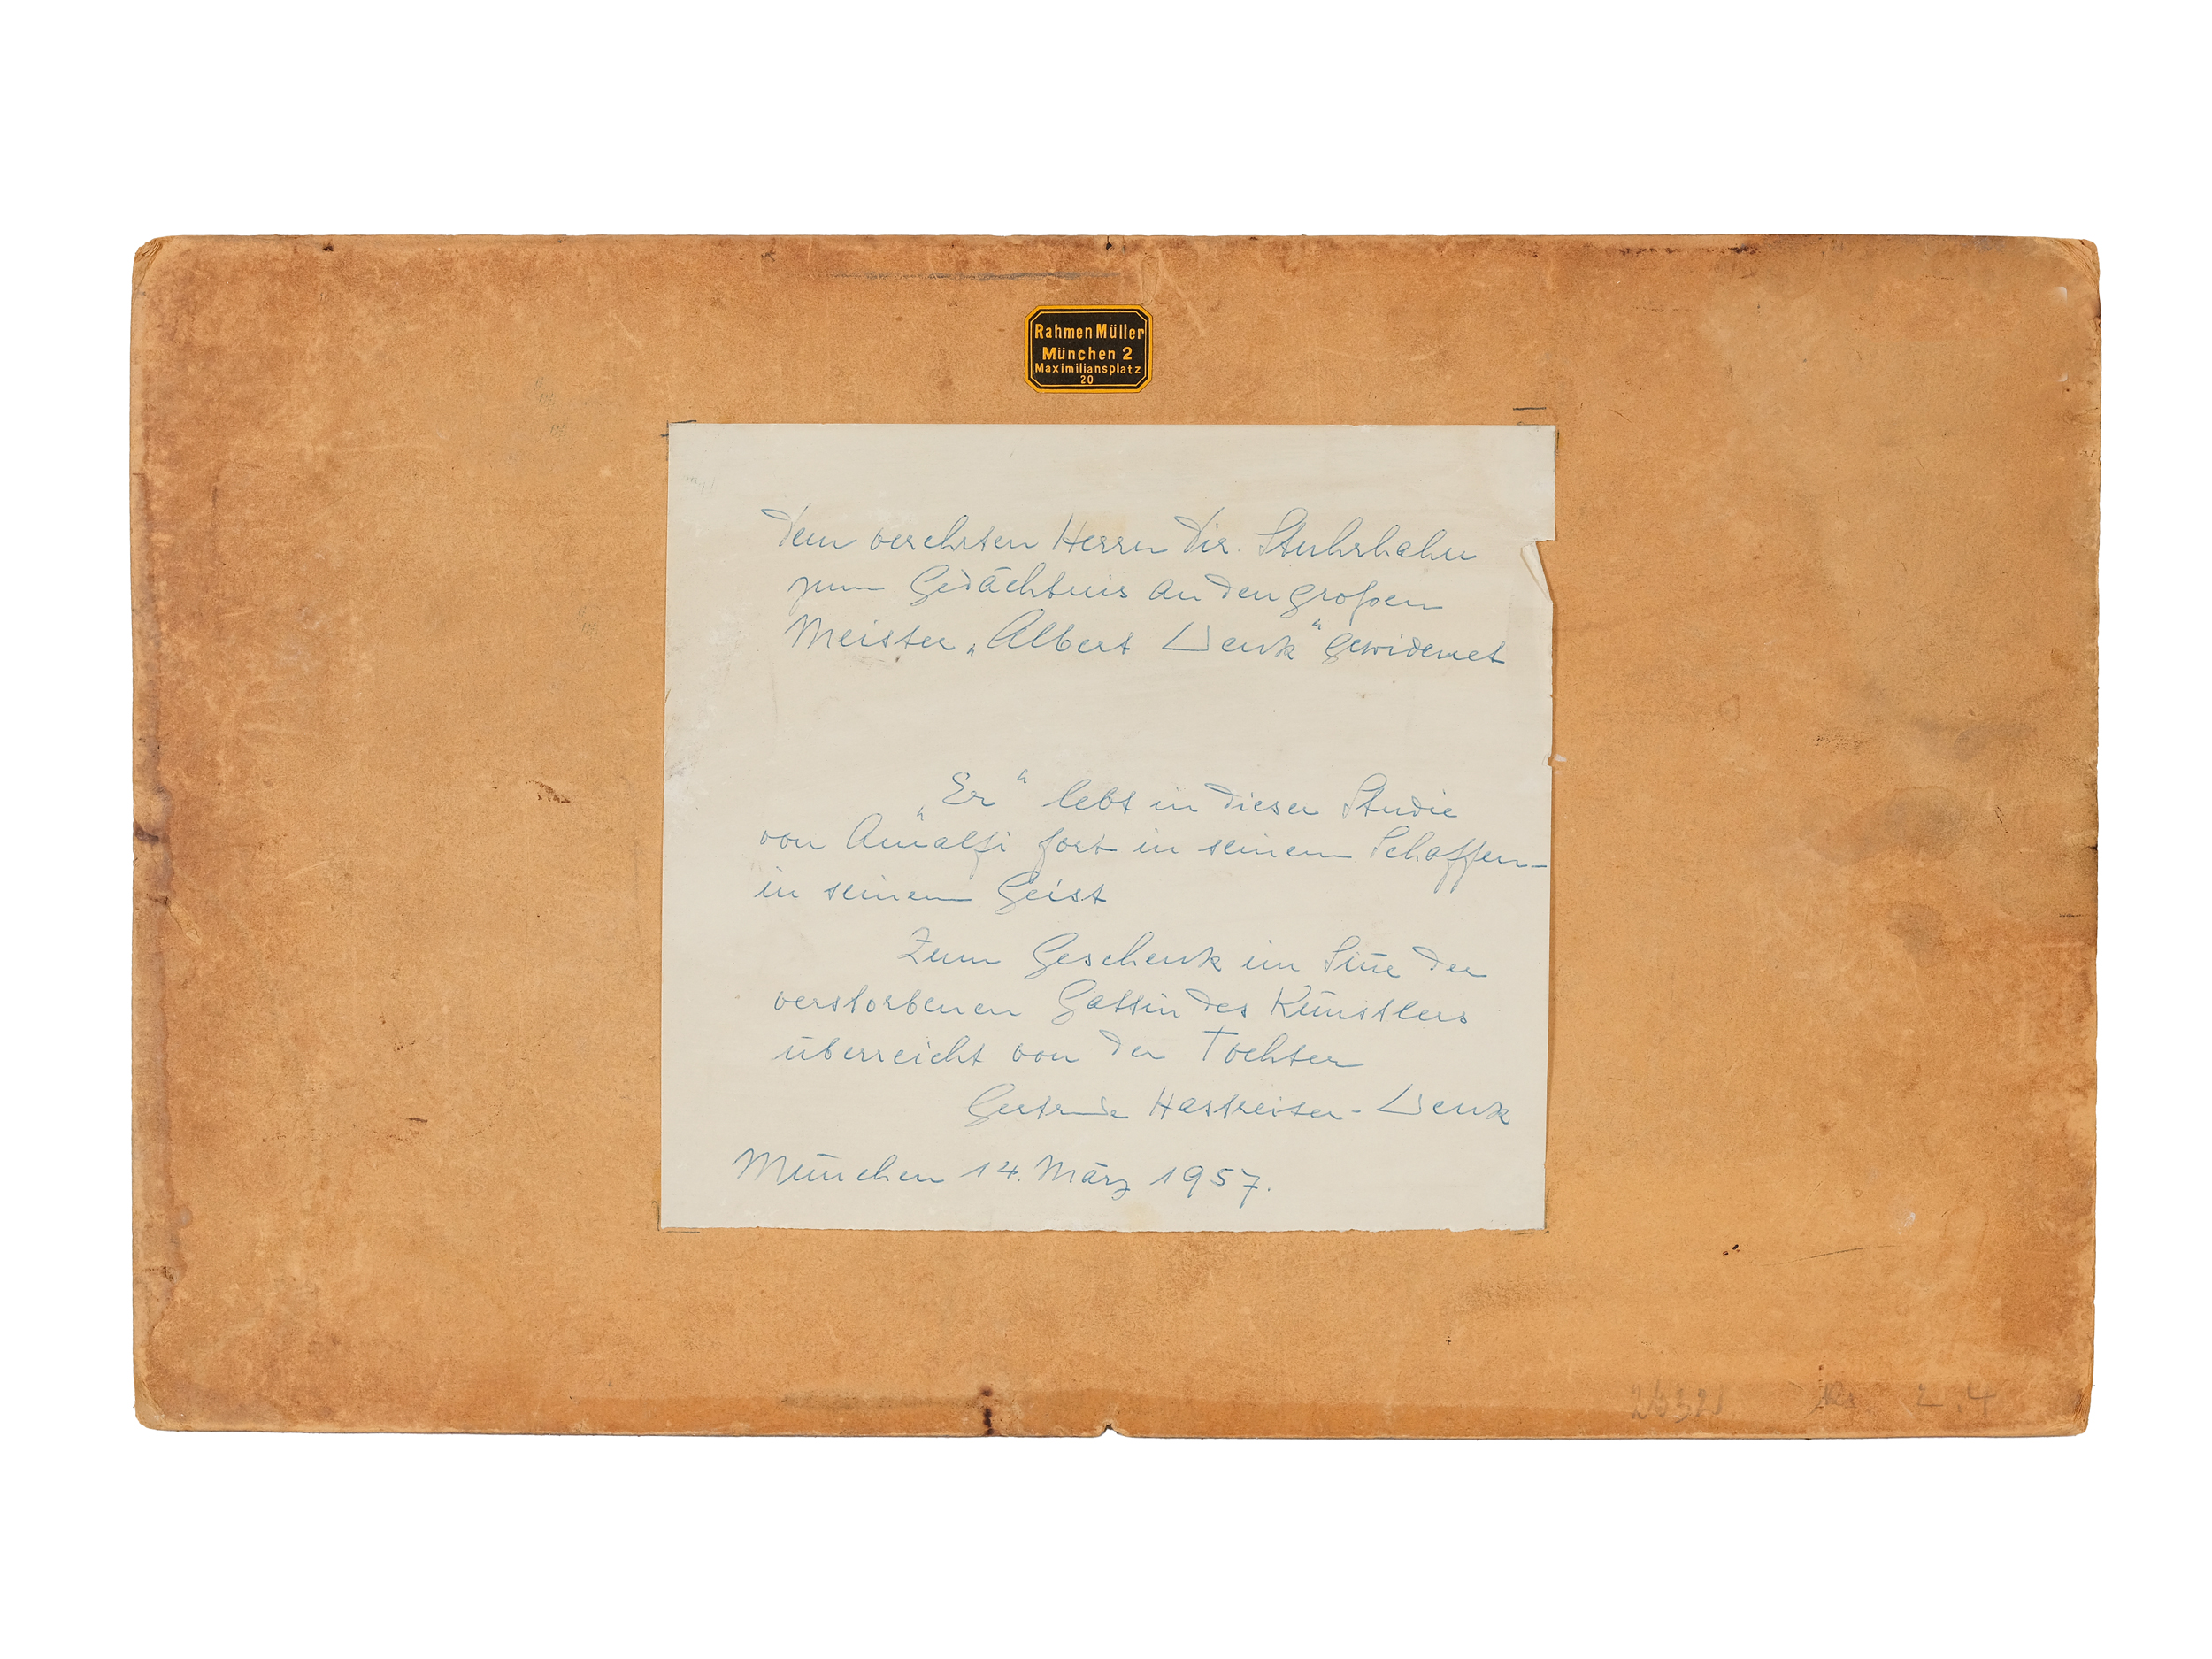 Rahmen Müller
München 2
Maximiliansplatz
20
Dem verehrten Herrn Dir. Stuhrhahn
zum Gedächtnis an den großen
Meister „Albert Wenk“ gewidmet
„Er“ lebt in dieser Studie
von Amalfi fort in seinem Schaffen –
in seinem Geist
Zum Geschenk im Sinne der
verstorbenen Gattin des Künstlers
überreicht von der Tochter
Gertrude - Wenk
München 14. März 1957.
2 4